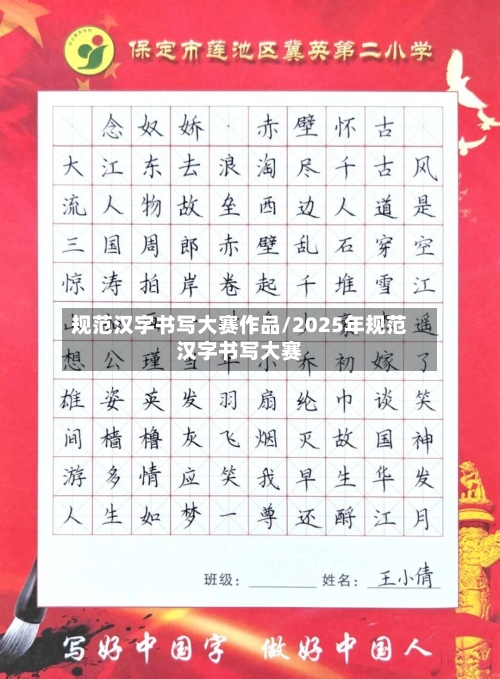 保定市莲池区冀英第二小学
念奴娇·赤壁怀古
大江东去浪淘尽千古风
流人物故垒西边人道是
三国周郎赤壁乱石穿空
惊涛拍岸卷起千堆雪江
遥
规范汉字书写大赛作品/2025年规范
汉字书写大赛
想公瑾年小乔初嫁了
雄姿英发羽扇纶巾谈笑
间樯橹灰飞烟灭故国神
游多情应笑我早生华发
人生如梦一尊还酹江月
班级：________ 姓名：王小倩
写好中国字 做好中国人